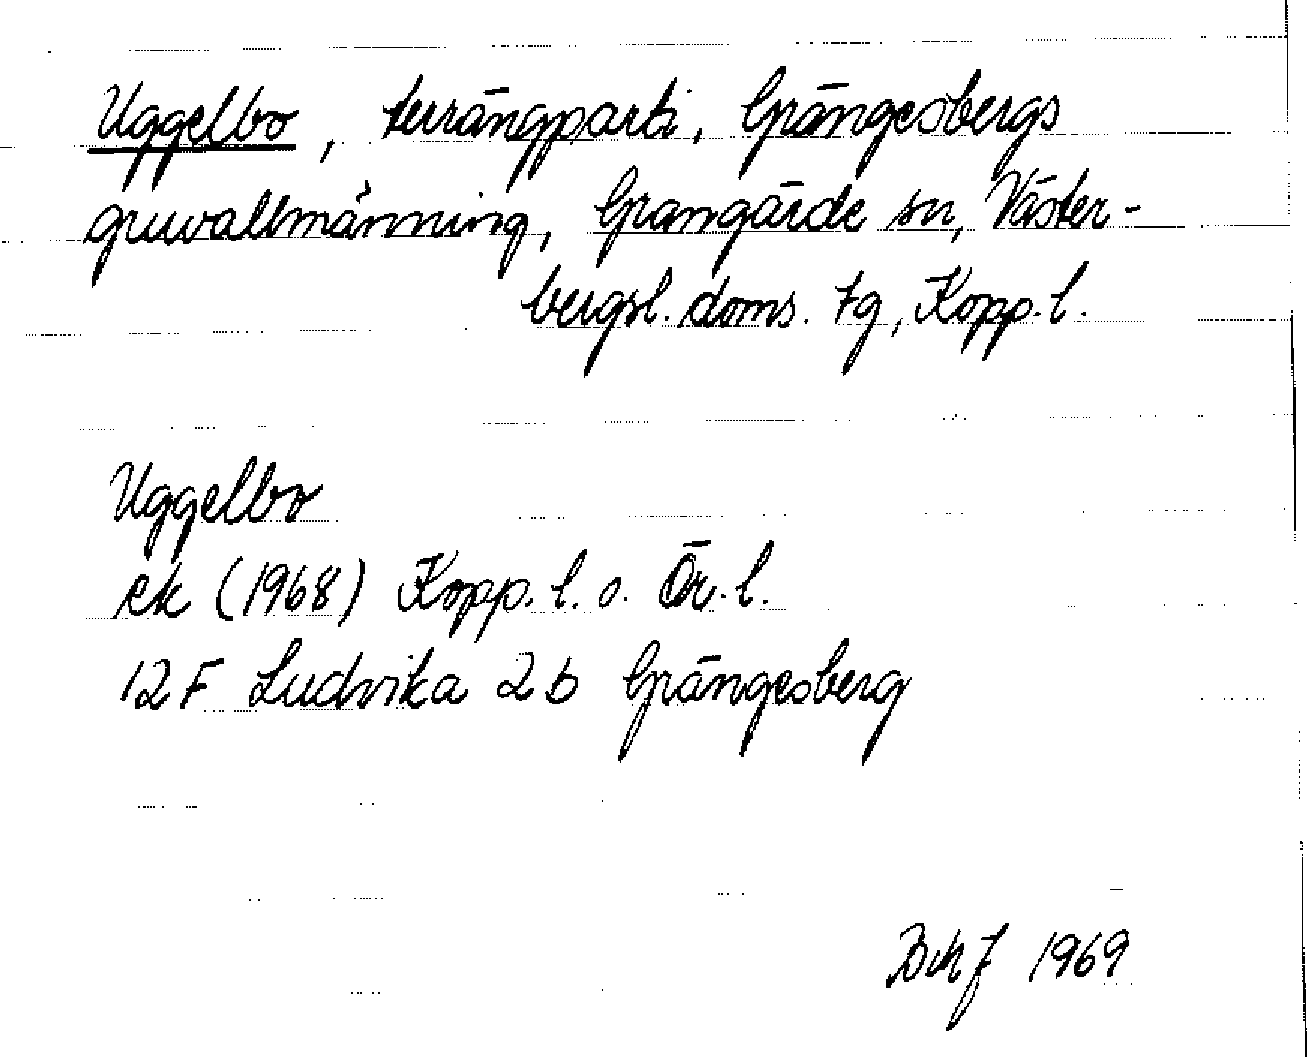 Uggelbo, terrängparti, Grängesbergs
gruvallmänning, Grangärde sn, Väster-
bergsl. doms. tg, Kopp. l.
Uggelbo
ek (1968) Kopp. l. o. Ör. l.
12 F Ludvika 2 b Grängesberg
1969